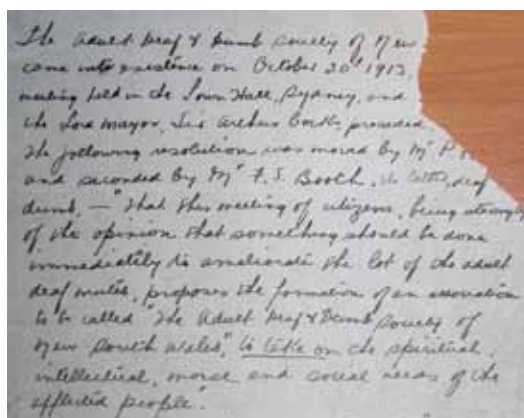 The Adult Deaf & Dumb Society of New
came into existence on October 20th 1913,
meeting held in the Town Hall, Sydney, and
the Lord Mayor, Sir Arthur Cocks, presided.
The following resolution was moved by Mr P
and seconded by Mr F. S. Booth, the latter, deaf
dumb, — "That this meeting of citizens, being strongly
of the opinion that something should be done
immediately to ameliorate the lot of the adult
deaf mutes, proposes the formation of an association
to be called "The Adult Deaf & Dumb Society of
New South Wales", to take on the spiritual,
intellectual, moral and social needs of the
afflicted people".